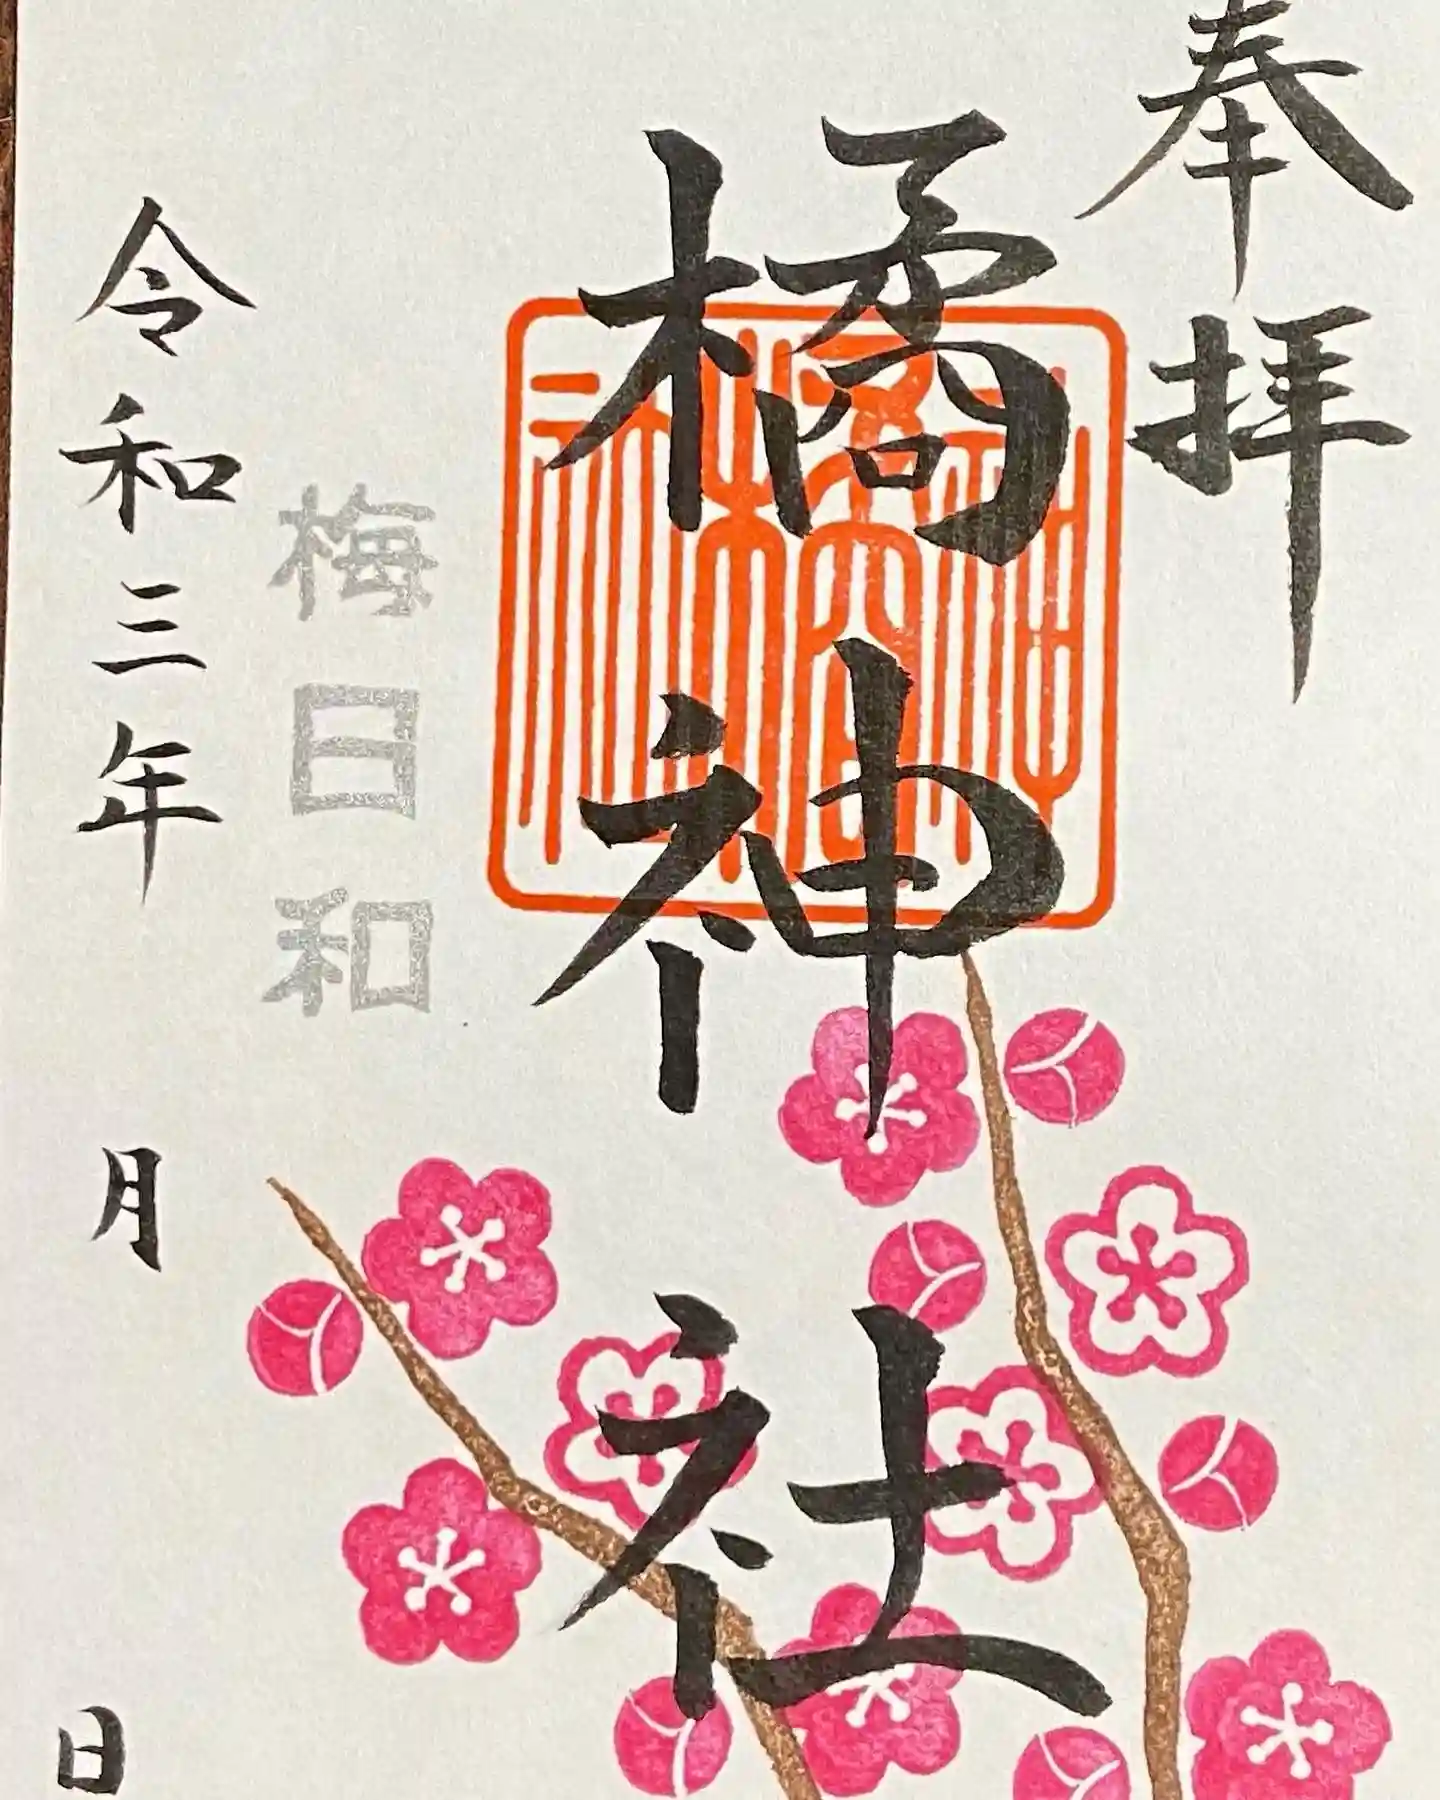 奉拝
橘神社
梅日和
令和三年 月 日